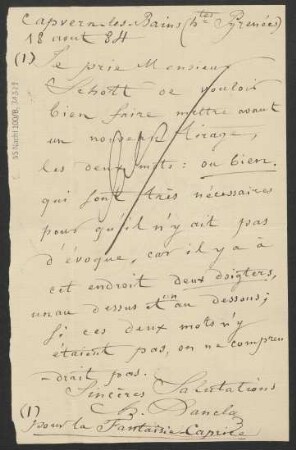 Capvern-les-Bains (htes Pyrenées)
18 aout 84
(1) Je prie Monsieur
Schott de vouloir
bien faire mettre avant
un nouveau tirage,
les deux mots: ou bien.
qui sont très nécessaires
pour qu'il n'y ait pas
d'évoque, car il y a à
cet endroit deux doigters,
un au dessus et un au dessous;
si ces deux mots n'y
étaient pas, on ne compren
-drait pas.
Sincères Salutations
Dancla
(1)
pour la Fantaisie-Caprice